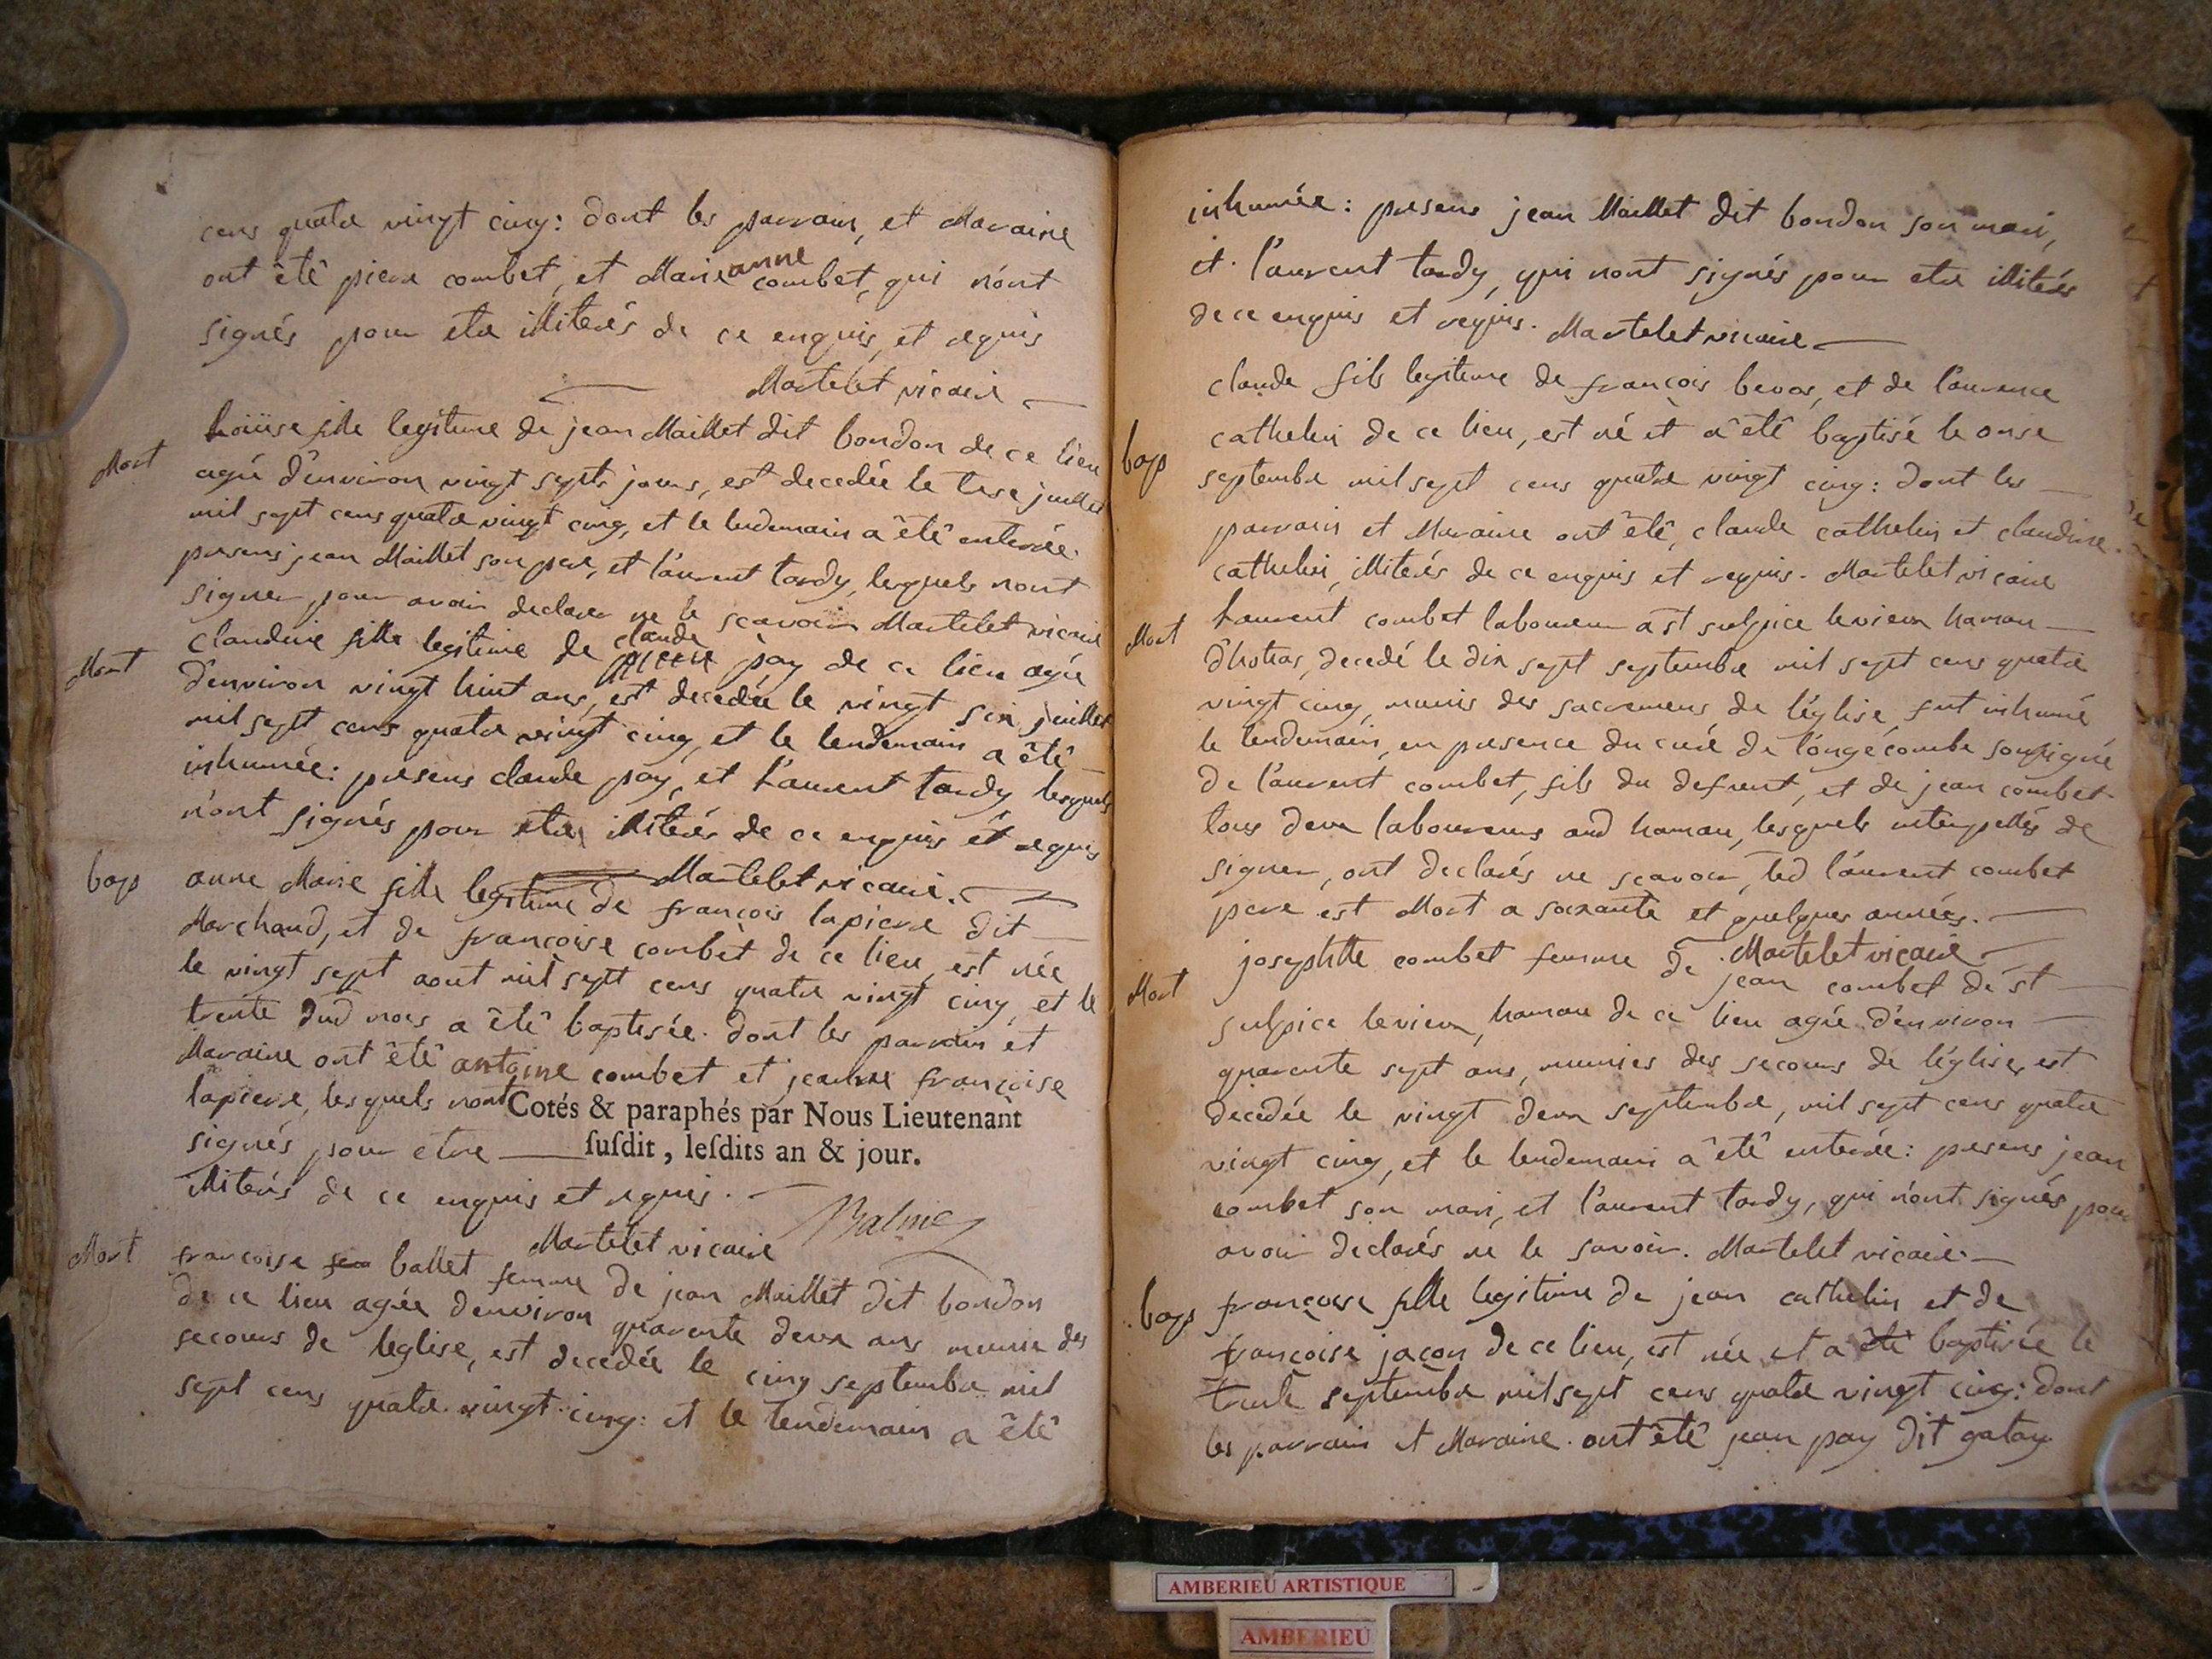 cens quatre vingt cinq: dont les parrain, et Maraine
ont êtê piere combet, et Marie anne combet, qui n'ont
signés pour etre illiterés de ce enquis, et requis
Martelet vicaire
Mort
Loüise fille legitime de jean Maillet dit bondon de ce lieu
agée d'environ vingt septs jours, est decedée le trese juillet
mil sept cens quatre vingt cinq, et le lendemain a êtê enterrée.
presens jean Maillet son pere, et l'aurent tardy, lesquels nont
signer, pour avoir declarer ne le scavoir Martelet vicaire
Mort
claudine fille legitime de claude pay de ce lieu agée
d'environ vingt huit ans, est decedée le vingt six juillet
mil sept cens quatre vingt cinq, et le lendemain a êtê
inhumée: presens claude pay, et Laurent tardy, lesquels
n'ont signés pour etre illiterés de ce enquis et requis
Martelet vicaire.
bap
anne Marie fille legitime de françois lapierre dit
Marchand, et de françoise combet de ce lieu, est née
le vingt sept aout mil sept cens quatre vingt cinq, et le
trente dud mois a êtê baptisée. dont les parrain et
Maraine ont êtê antoine combet et jeanne françoise
lapierre, lesquels nont
Cotés & paraphés par Nous Lieutenant
signés pour etre
ſuſdit, leſdits an & jour.
illiterés de ce enquis et requis.
Balme
Martelet vicaire
Mort
francoise ballet femme de jean Maillet dit bondon
de ce lieu agée denviron quarente deux ans munie des
secours de l'eglise, est decedée le cinq septembre mil
sept cens quatre vingt cinq: et le lendemain a êtê
inhumée: presens jean Maillet dit bondon son mari,
et l'aurent tardy, qui nont signés pour etre illiterés
de ce enquis et requis. Martelet vicaire
bap
claude fils legitime de françois beroz, et de l'aurence
cathelin de ce lieu, est né et a êtê baptisé le onse
septembre mil sept cens quatre vingt cinq: dont les
parrain et Maraine ont êtê, claude cathelin et claudine
cathelin, illiterés de ce enquis et requis. Martelet vicaire
Mort
Laurent combet laboureur a st sulpice le vieux hamau
d'hotias, decedé le dix sept septembre mil sept cens quatre
vingt cinq, munis des sacremens de l'église, fut inhumé
le lendemain, en presence du curé de l'ongecombe soussigné
de l'aurent combet, fils du defunt, et de jean combet
tous deux laboureurs aud hamau, lesquels interpellés de
signer, ont declarés ne scavoir, led l'aurent combet
pere est Mort a soixante et quelques années.
Martelet vicaire
Mort
josephtte combet femme de jean combet de st
sulpice le vieux, hamau de ce lieu agée d'environ
quarente sept ans, munies des secours de l'église, est
decedée le vingt deux septembre, mil sept cens quatre
vingt cinq, et le lendemain a êtê enterrée: presens jean
combet son mari, et l'aurent tardy, qui n'ont signés pour
avoir declarés ne le savoir. Martelet vicaire.
bap
françoise fille legitime de jean cathelin et de
françoise jaçon de ce lieu, est née et a êtê baptisée le
trente septembre mil sept cens quatre vingt cinq: dont
les parrain et Maraine ont êtê jean pay dit gatay
AMBERIEU ARTISTIQUE
AMBERIEU